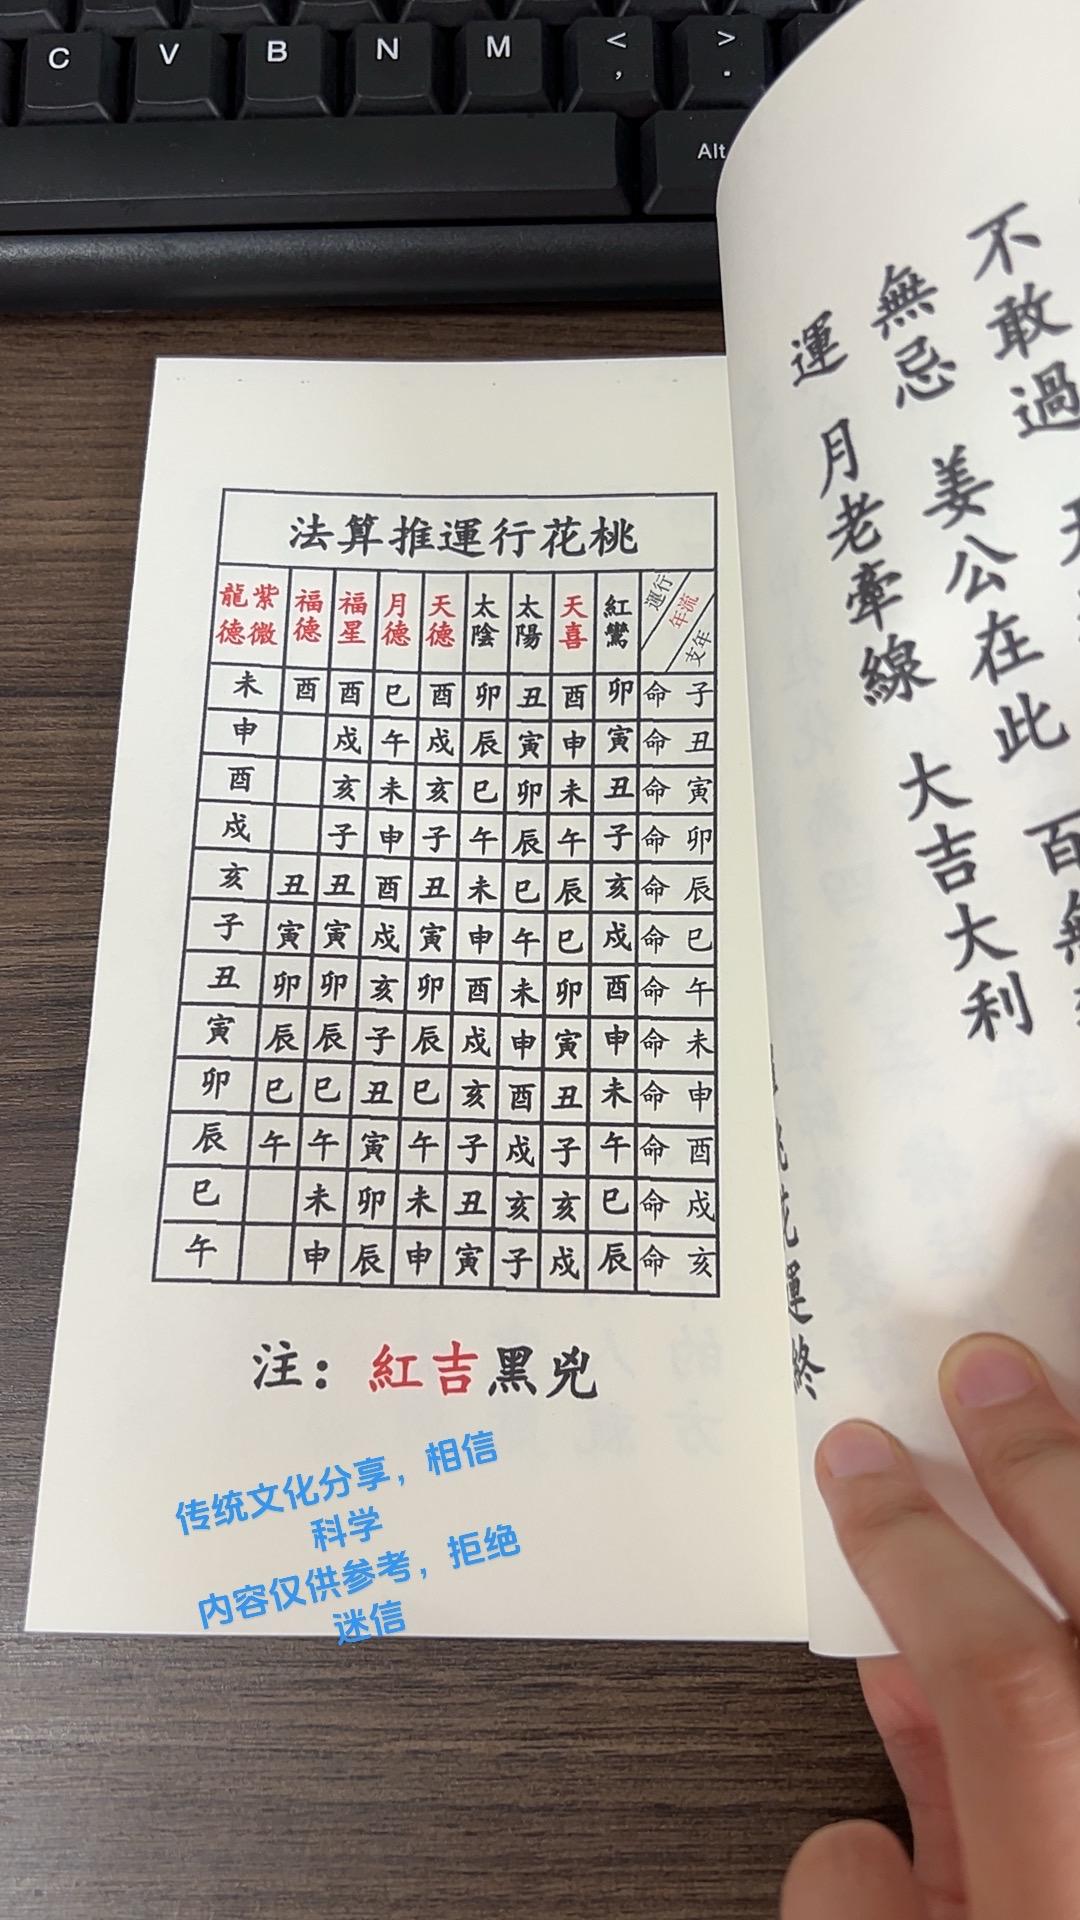 C V B N M < , > .
Alt
不敢過
無忌 姜公在此 百無
運 月老牽線 大吉大利
花運終
桃花行運推算法
年支 流年 行運 紅鸞 天喜 太陽 太陰 天德 月德 福星 福德 紫微 龍德
子命 卯 酉 丑 卯 酉 巳 酉 酉 未
丑命 寅 申 寅 辰 戌 午 戌 申
寅命 丑 未 卯 巳 亥 未 亥 酉
卯命 子 午 辰 午 子 申 子 戌
辰命 亥 辰 巳 未 丑 酉 丑 丑 亥
巳命 戌 巳 午 申 寅 戌 寅 寅 子
午命 酉 卯 未 酉 卯 亥 卯 卯 丑
未命 申 寅 申 戌 辰 子 辰 辰 寅
申命 未 丑 酉 亥 巳 丑 巳 巳 卯
酉命 午 子 戌 子 午 寅 午 午 辰
戌命 巳 亥 亥 丑 未 卯 未 巳
亥命 辰 戌 子 寅 申 辰 申 午
注：紅吉黑兇
传统文化分享，相信
科学
内容仅供参考，拒绝
迷信